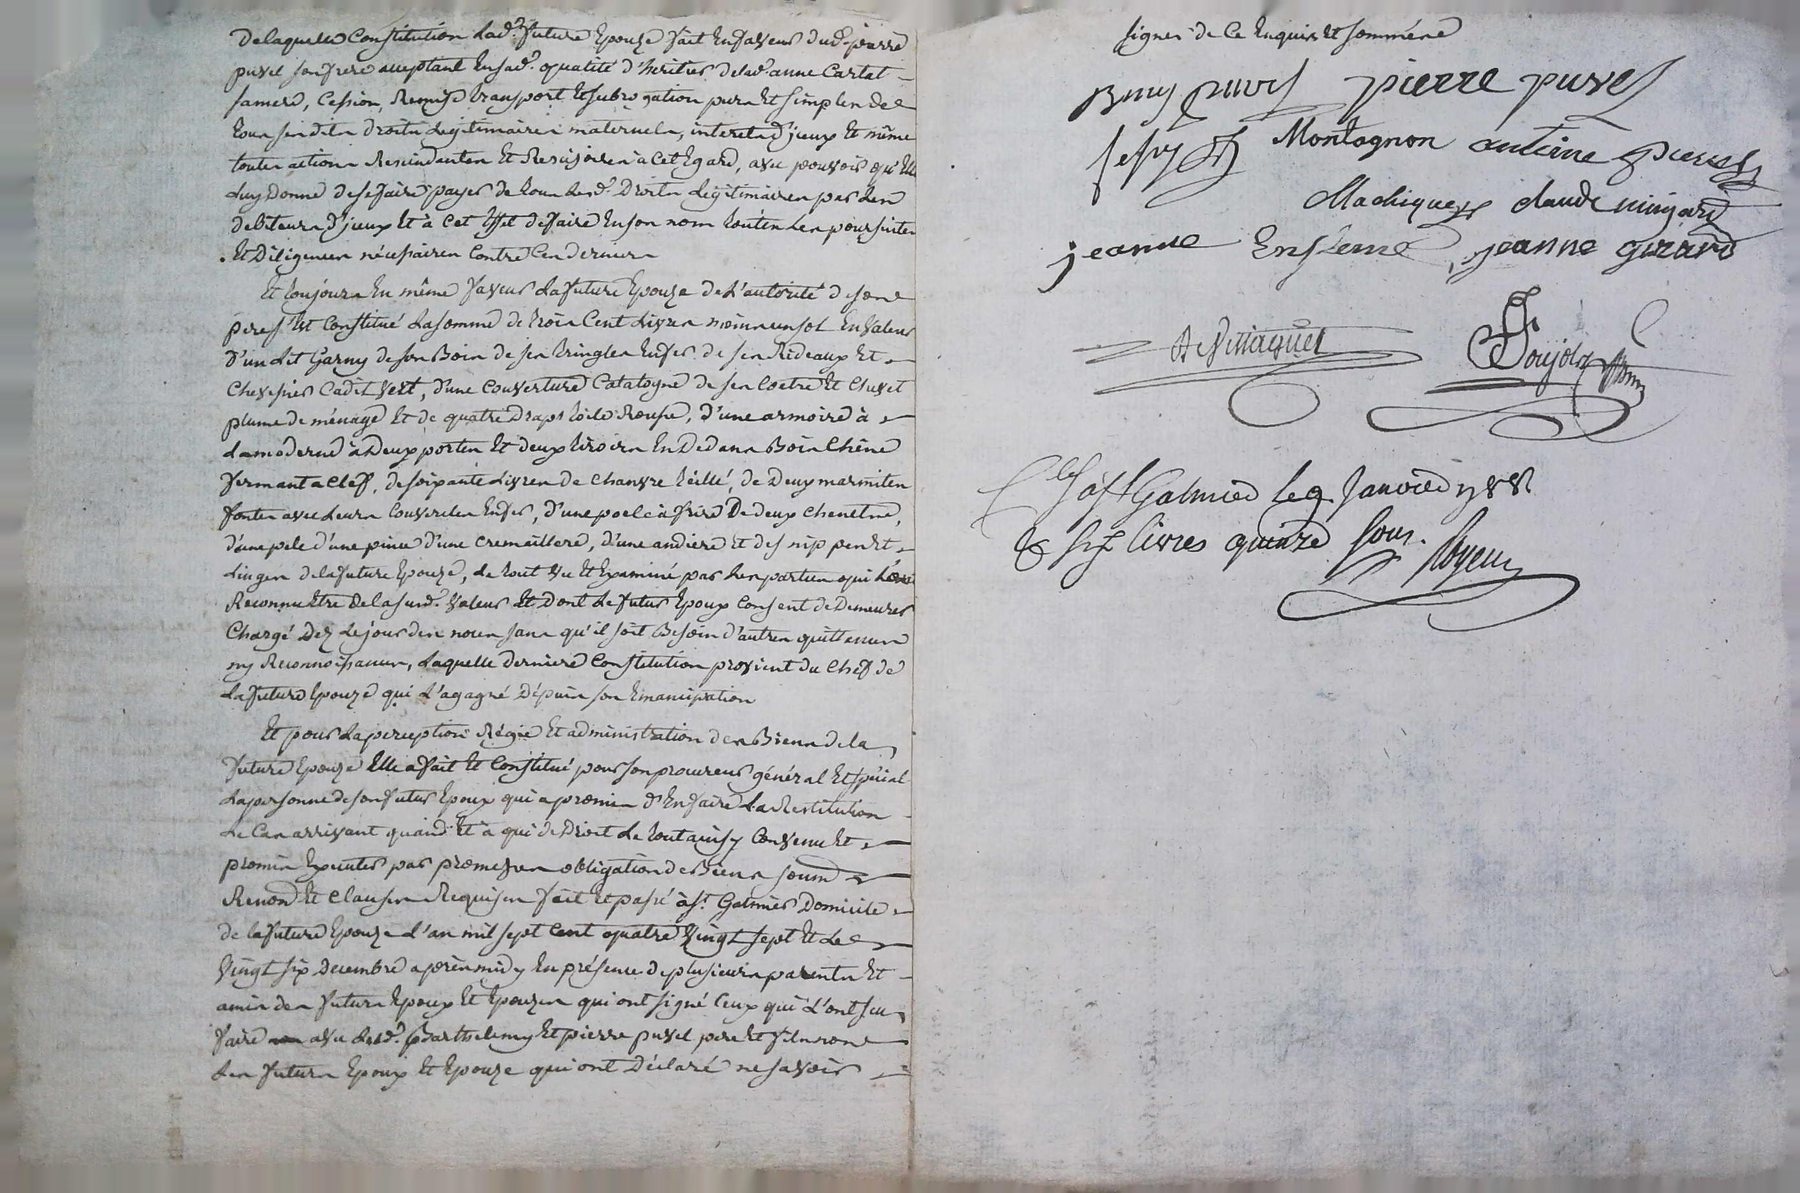 De laquelle Constitution lad.e future Epouze fait En faveur dud. pierre
puvel son frere acceptant En sad.e qualité d'heritier de lad.e anne Cartet
sa mere, Cession, Remise transport Et subrogation pure Et simple de
tous sesdits droits legitimaires maternels, interets d'jceux Et même
toutes actions Rescindantes Et Rescisoires à Cet Egard, avec pouvoir qu'Elle
luy Donne de se faire payer de tous lesd. Droits legitimaires par les
debiteurs d'jceux Et à cet Effet de faire En son nom toutes les poursuites
Et Diligences nécessaires Contre Ces derniers
Et toujours En même faveur la future Epouze de l'autorité de son
pere s'Est Constitué la somme de trois Cent livres moins un sol En valeur
d'un lit Garny de son Bois de ses tringles En fer de ses Rideaux Et
Chevesier Cadit vert, d'une Couverture Catalogne de sa Coetre Et Chevet
plume de ménage Et de quatre Draps toile Rousse, d'une armoire à
la moderne à Deux portes Et deux tiroirs En Dedans Bois Chêne
fermant a Clef, de soixante livres de Chanvre teillé, de Deux marmites
fonte avec leurs Couvercles En fer, d'une poele à frire De deux Chenetne,
d'une pele d'une pince d'une Cremaillere, d'une andiere et des nippes Et
linges de la future Epouze, le tout vu Et Examiné par les parties qui l'ont
Reconnu Etre de la susd.e valeur Et Dont le futur Epoux Consent de Demeurer
Chargé Dez le jour des noces sans qu'il soit Besoin d'autres quittances
ny Reconnoissances, laquelle derniere Constitution provient du Chef de
la future Epouze qui l'a gagné Depuis son Emancipation
Et pour la perception Régie Et administration des Biens de la
future Epouze Elle a fait Et Constitué pour son procureur général Et spécial
la personne de son futur Epoux qui a promis d'En faire la Restitution
le Cas arrivant quand Et à qui de Droit le tout ainsy Convenu Et
promis Executer par promesses obligation de Biens soumd.
Renond. Et Clauses Requises fait Et passé à St. Galmier Domicile
de la future Epouze l'an mil sept Cent quatre Vingt sept Et le
Vingt six Decembre après midy En présence de plusieurs parents Et
amis des futurs Epoux Et Epouze qui ont signé Ceux qui l'ont scu
faire avec lesd. Barthelemy Et pierre puvel pere Et fils non
les futurs Epoux Et Epouze qui ont Déclaré ne savoir
signer de Ce Enquis Et sommés
Bmy puvel pierre puvel
Montagnon antoine
claude
jeanne jeanne girard
Soujol
St Galmier le 9. Janvier 1788
six livres quinze sous. Royeur